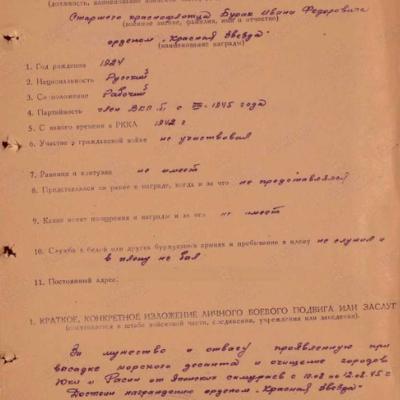 (должность, наименование
Старшего краснофлотца Бурак Ивана Федоровича
(воинское звание, фамилия, имя и отчество)
орденом „Красная Звезда"
(наименование награды)
1. Год рождения 1924
2. Национальность Русский
3. Соц. положение Рабочий
4. Партийность член ВКП(б) с 1945 года
5. С какого времени в РККА 1942 г
6. Участие в гражданской войне не участвовал
7. Ранения и контузии не имеет
8. Представлялся ли ранее к награде, когда и за что не представлялся
9. Какие имеет поощрения и награды и за что не имеет
10. Служба в белой или других буржуазных армиях и пребывание в плену не служил и
в плену не был
11. Постоянный адрес.
1. КРАТКОЕ, КОНКРЕТНОЕ ИЗЛОЖЕНИЕ ЛИЧНОГО БОЕВОГО ПОДВИГА ИЛИ ЗАСЛУГ
(составляется в штабе войсковой части, соединения, учреждения или заведения).
За мужество и отвагу проявленную при
высадке морского десанта и очищение городов
Юки и Расин от японских самураев с по 12.08.45 г
Достоин награждению орденом „Красная Звезда"